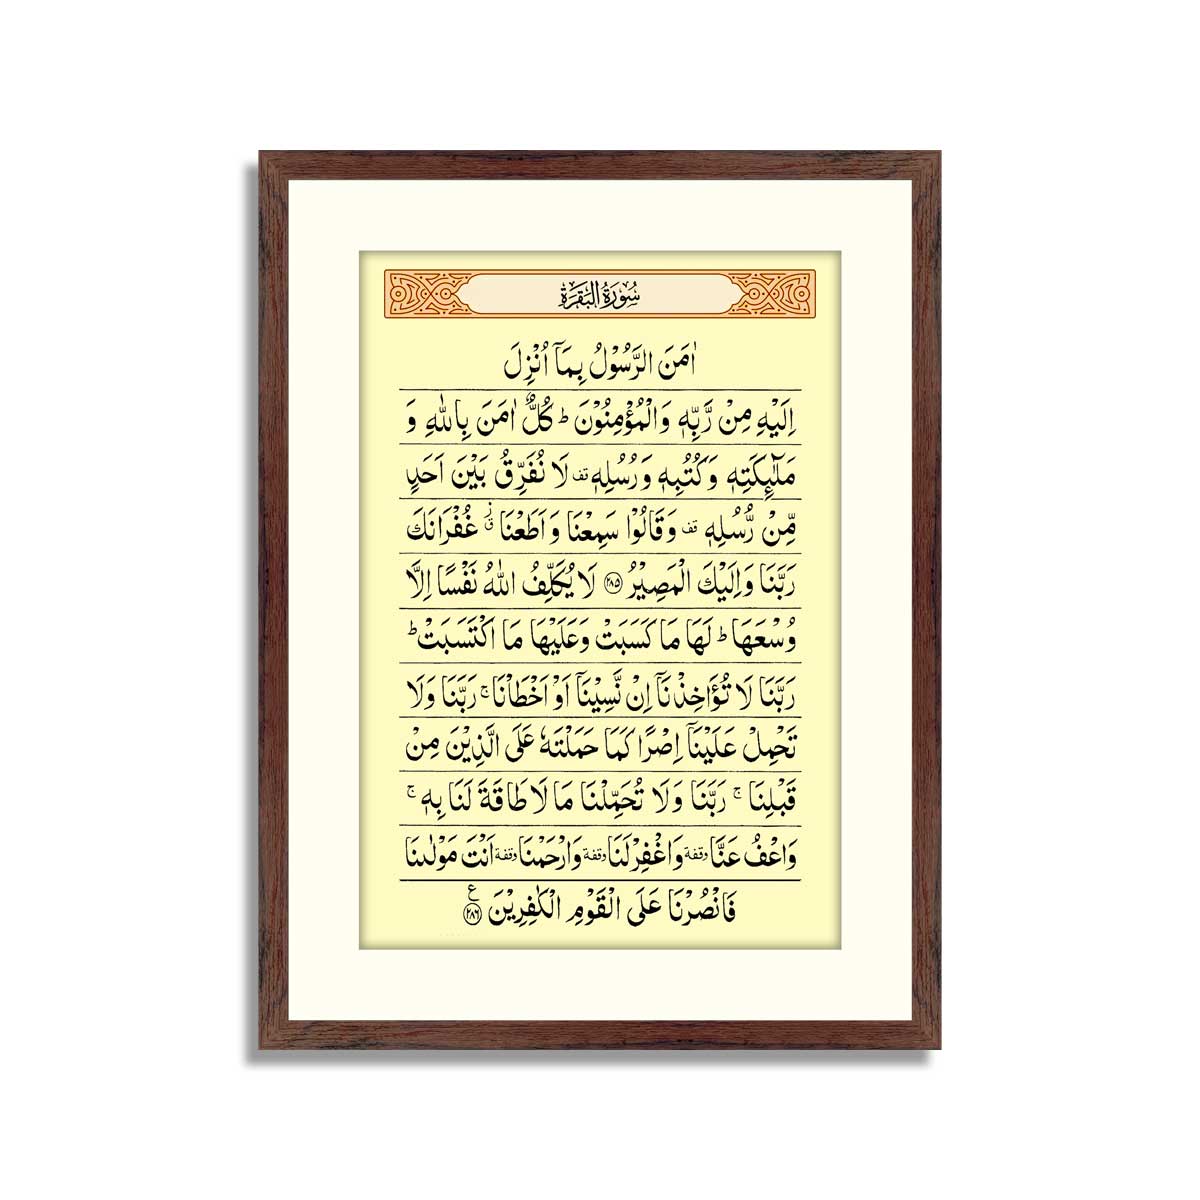 سُورَةُ الْبَقَرَةِ
اٰمَنَ الرَّسُوْلُ بِمَاۤ اُنْزِلَ
اِلَيْهِ مِنْ رَّبِّهٖ وَالْمُؤْمِنُوْنَ ؕ كُلٌّ اٰمَنَ بِاللّٰهِ وَ
مَلٰٓئِكَتِهٖ وَكُتُبِهٖ وَرُسُلِهٖ قف لَا نُفَرِّقُ بَيْنَ اَحَدٍ
مِّنْ رُّسُلِهٖ قف وَقَالُوْا سَمِعْنَا وَاَطَعْنَا ق ز غُفْرَانَكَ
رَبَّنَا وَاِلَيْكَ الْمَصِيْرُ ۲۸۵ لَا يُكَلِّفُ اللّٰهُ نَفْسًا اِلَّا
وُسْعَهَا ؕ لَهَا مَا كَسَبَتْ وَعَلَيْهَا مَا اكْتَسَبَتْ ؕ
رَبَّنَا لَا تُؤَاخِذْنَاۤ اِنْ نَّسِيْنَاۤ اَوْ اَخْطَاْنَا ۚ رَبَّنَا وَلَا
تَحْمِلْ عَلَيْنَاۤ اِصْرًا كَمَا حَمَلْتَهٗ عَلَى الَّذِيْنَ مِنْ
قَبْلِنَا ۚ رَبَّنَا وَلَا تُحَمِّلْنَا مَا لَا طَاقَةَ لَنَا بِهٖ ۚ
وَاعْفُ عَنَّا وقفة وَاغْفِرْ لَنَا وقفة وَارْحَمْنَا وقفة اَنْتَ مَوْلٰىنَا
فَانْصُرْنَا عَلَى الْقَوْمِ الْكٰفِرِيْنَ ع ۲۸۶